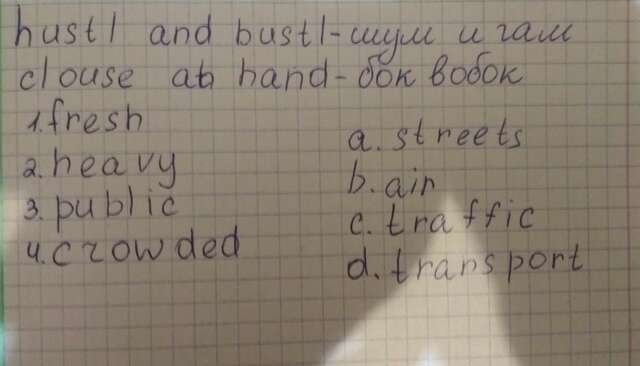 hustl and bustl-шум и гам
clouse at hand-бок вобок
1.fresh
2.heavy
3.public
4.crowded
a.streets
b.air
c.traffic
d.transport